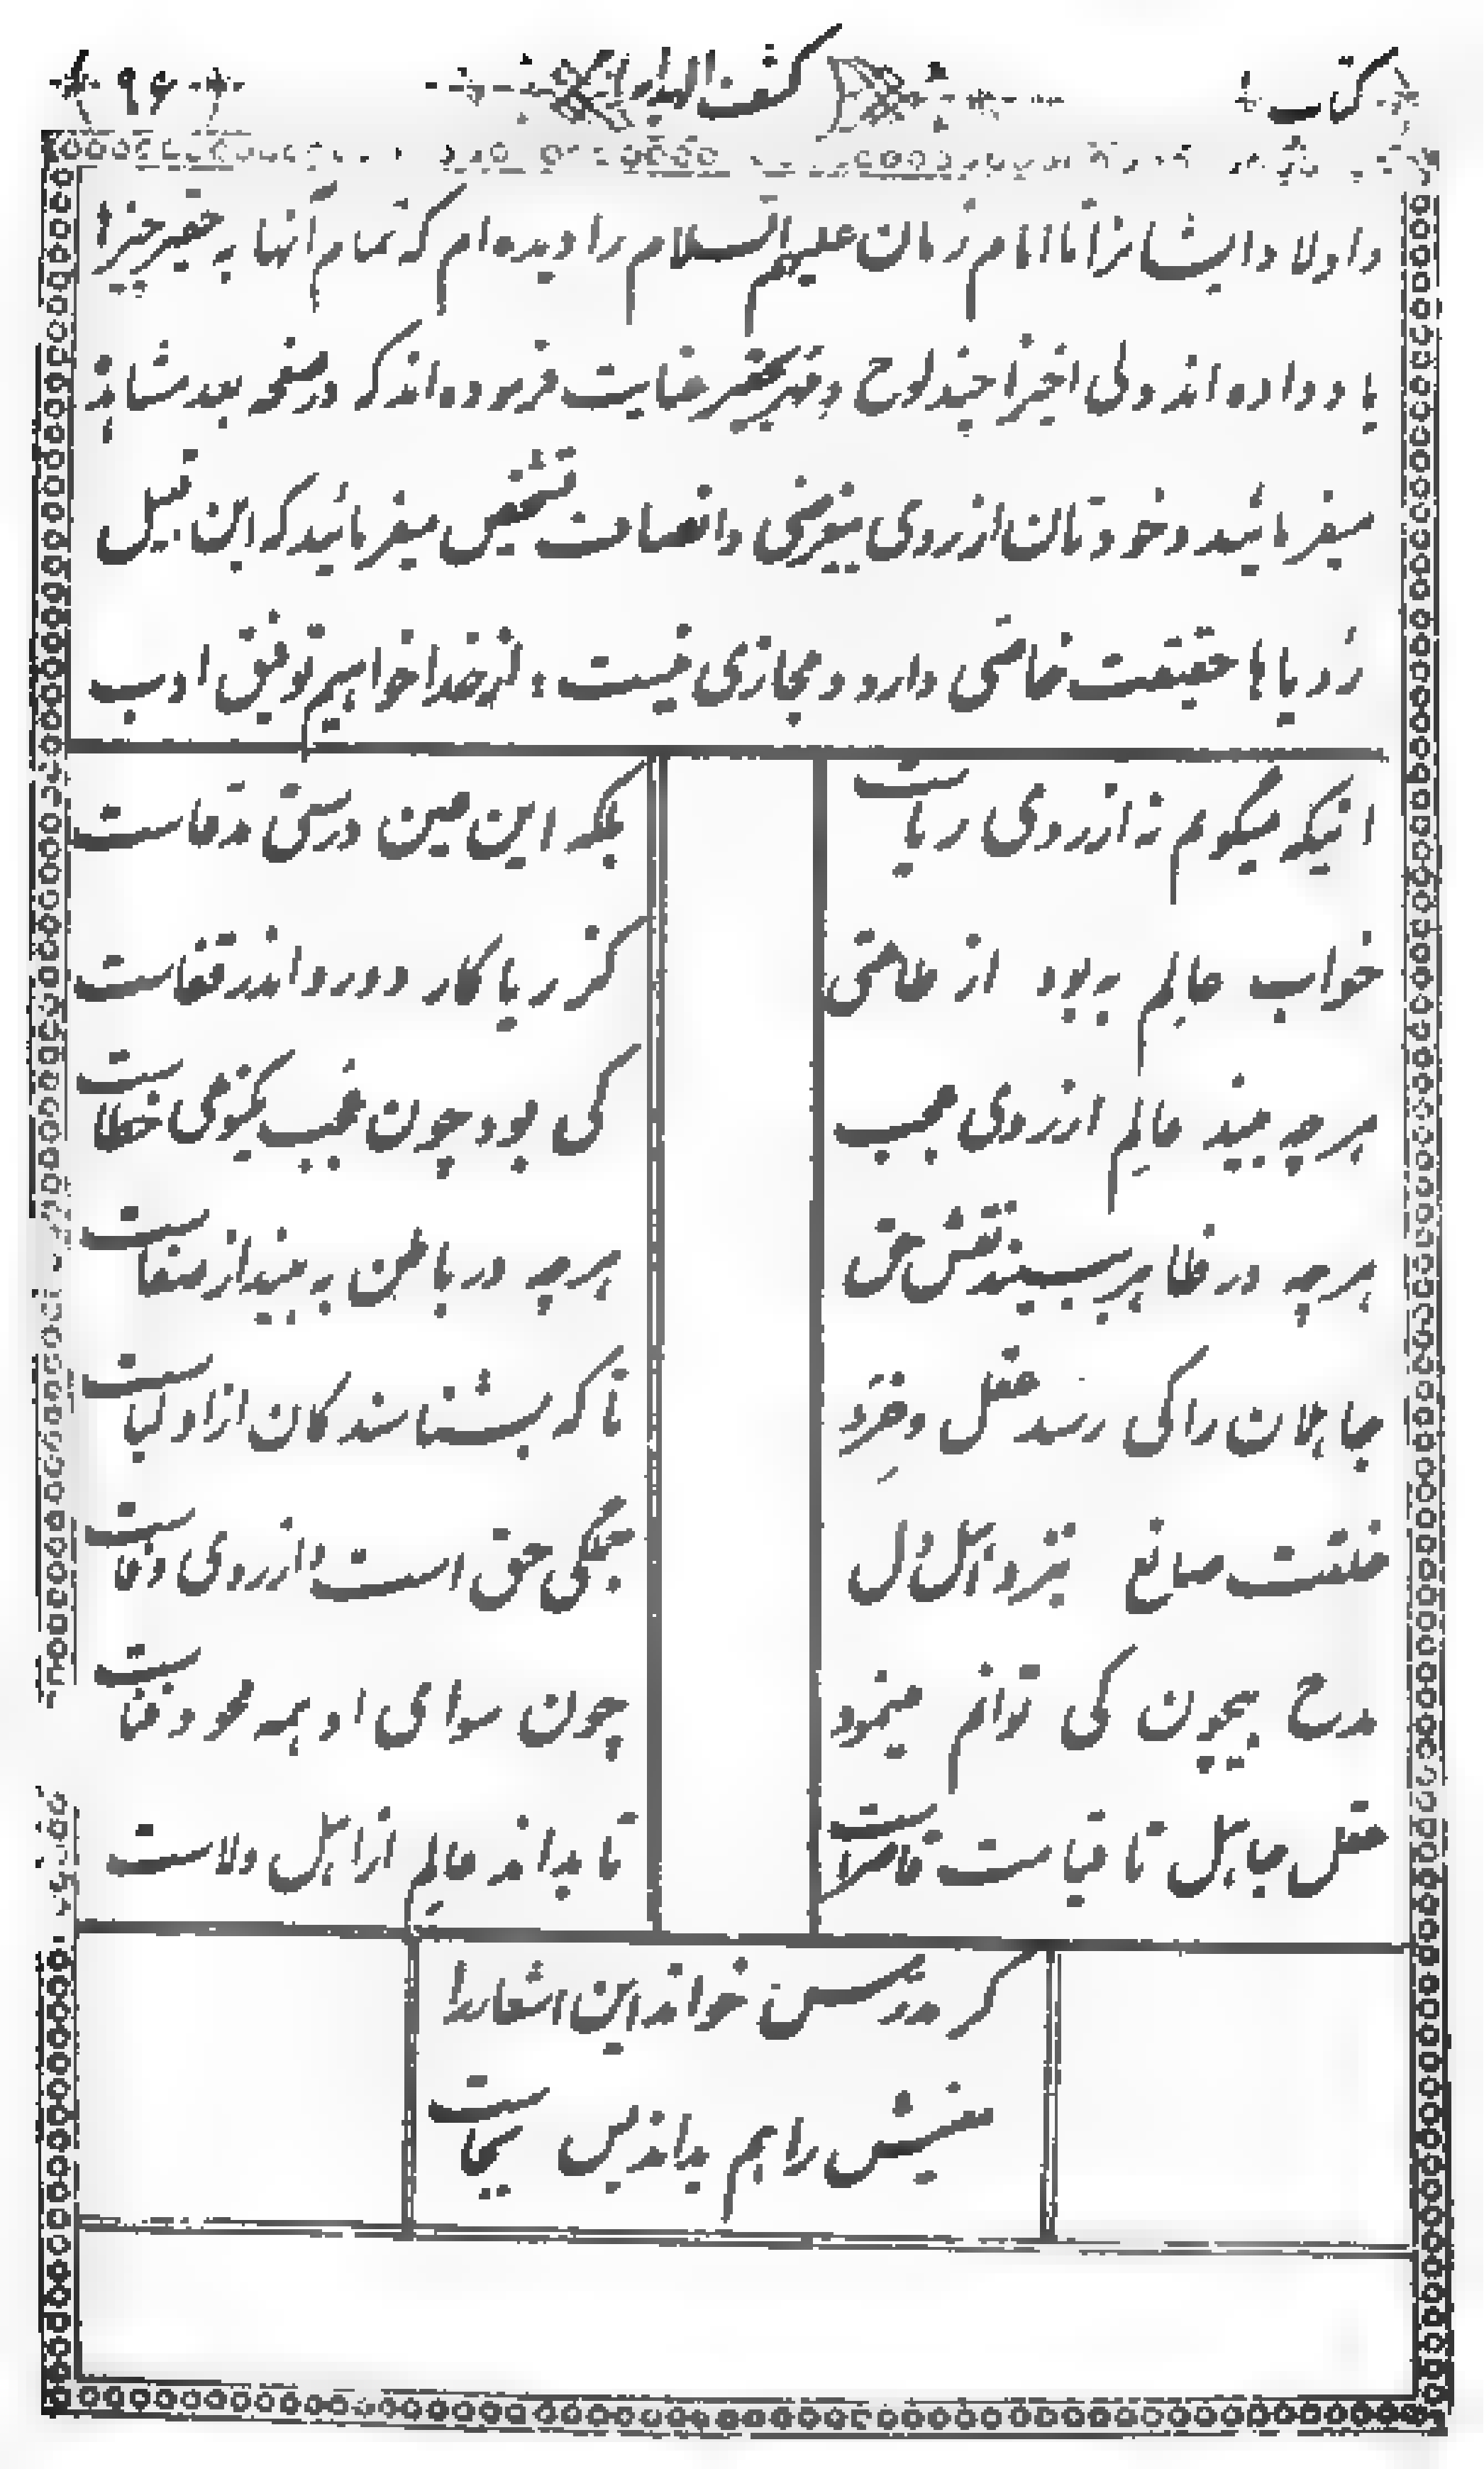 کتاب
کشف الهدایه
۹۶
و اولاد ایشانرا تا امام زمان علیهم السلام را دیده‌ام که تمام آنها به حقیر چیزها
یاد داده‌اند ولی اخیرا چند لوح و مهر بحقیر عنایت فرموده‌اند که در صفحه بعد مشاهده
میفرمائید و خودتان از روی بیغرضی و انصاف تشخیص میفرمائید که این قبیل
رؤیاها حقیقت خاصی دارد و مجازی نیست : از خدا خواهیم توفیق ادب
اینکه میگویم نه از روی ریاست
بلکه این عین درستی مدعاست
خواب عالم به بود از طاعتی
کز ریا کار دورو اندر قفاست
هر چه بیند عالم از روی عجب
کی بود چون عجب یکنوعی خطاست
هر چه در ظاهر ببیند نقش حق
هر چه در باطن به بیند از صفاست
جاهلان را کی رسد عقل و خرد
تا که بشناسند کان از اولیاست
خلقت صانع نزد اهل دل
جملگی حق است و از روی وفاست
مدح بیچون کی توانم مینمود
چون سوای او همه محو و فناست
عقل جاهل تا قیامت قاصر است
تا بداند عالم از اهل ولاست
گر مدرس خواند این اشعار را
معنیش را هم بداند پس بجاست